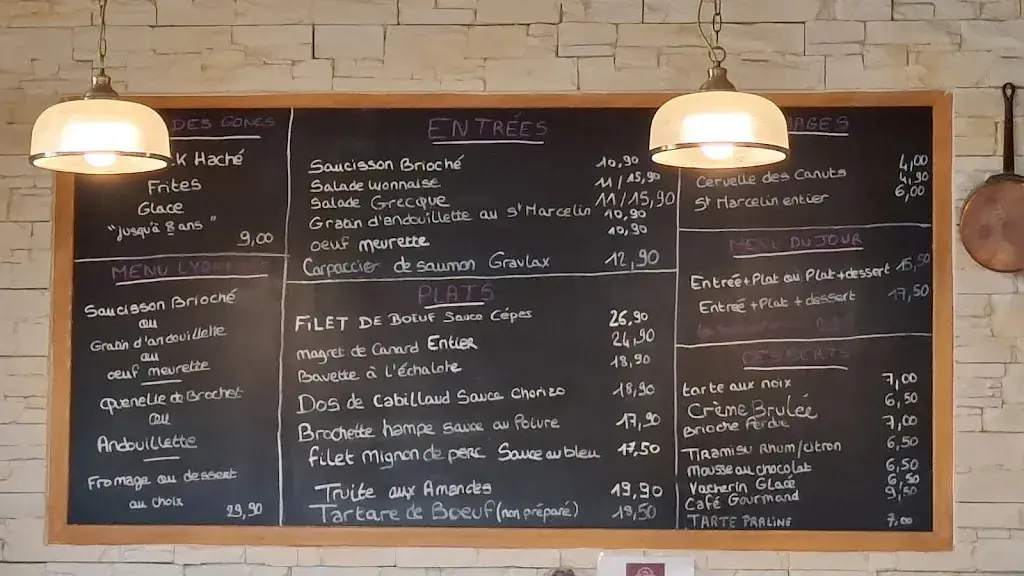 DES GONES
Haché
Frites
Glace
"jusqu'à 8 ans"
9,00
MENU
Saucisson Brioché
ou
Gratin d'andouillette
ou
oeuf meurette
Quenelle de Brochet
ou
Andouillette
Fromage ou dessert
au choix
29,90
ENTRÉES
Saucisson Brioché 10,90
Salade Lyonnaise 11/15,90
Salade Grecque 11/15,90
Gratin d'andouillette au St Marcelin 10,90
oeuf meurette 10,90
Carpaccier de saumon Gravlax 12,90
PLATS
FILET DE BOEUF Sauce Cépes 26,90
magret de Canard Entier 24,90
Bavette à l'échalote 18,90
Dos de Cabillaud Sauce Chorizo 18,90
Brochette hampe sauce au Poivre 17,90
filet Mignon de perc Sauce au bleu 17,50
Truite aux Amandes 19,90
Tartare de Boeuf (non préparé) 19,50
4,00
Cervelle des Canuts 4,90
St Marcelin entier 6,00
MENU DU JOUR
Entrée+Plat ou Plat+dessert 15,50
Entrée+Plat+dessert 17,50
DESSERTS
tarte aux noix 7,00
Crème Brulée 6,50
Brioche Perdue 7,00
Tiramisu Rhum/citron 6,50
Mousse au chocolat 6,50
Vacherin Glacé 6,50
Café Gourmand 9,50
TARTE PRALINE 7,00